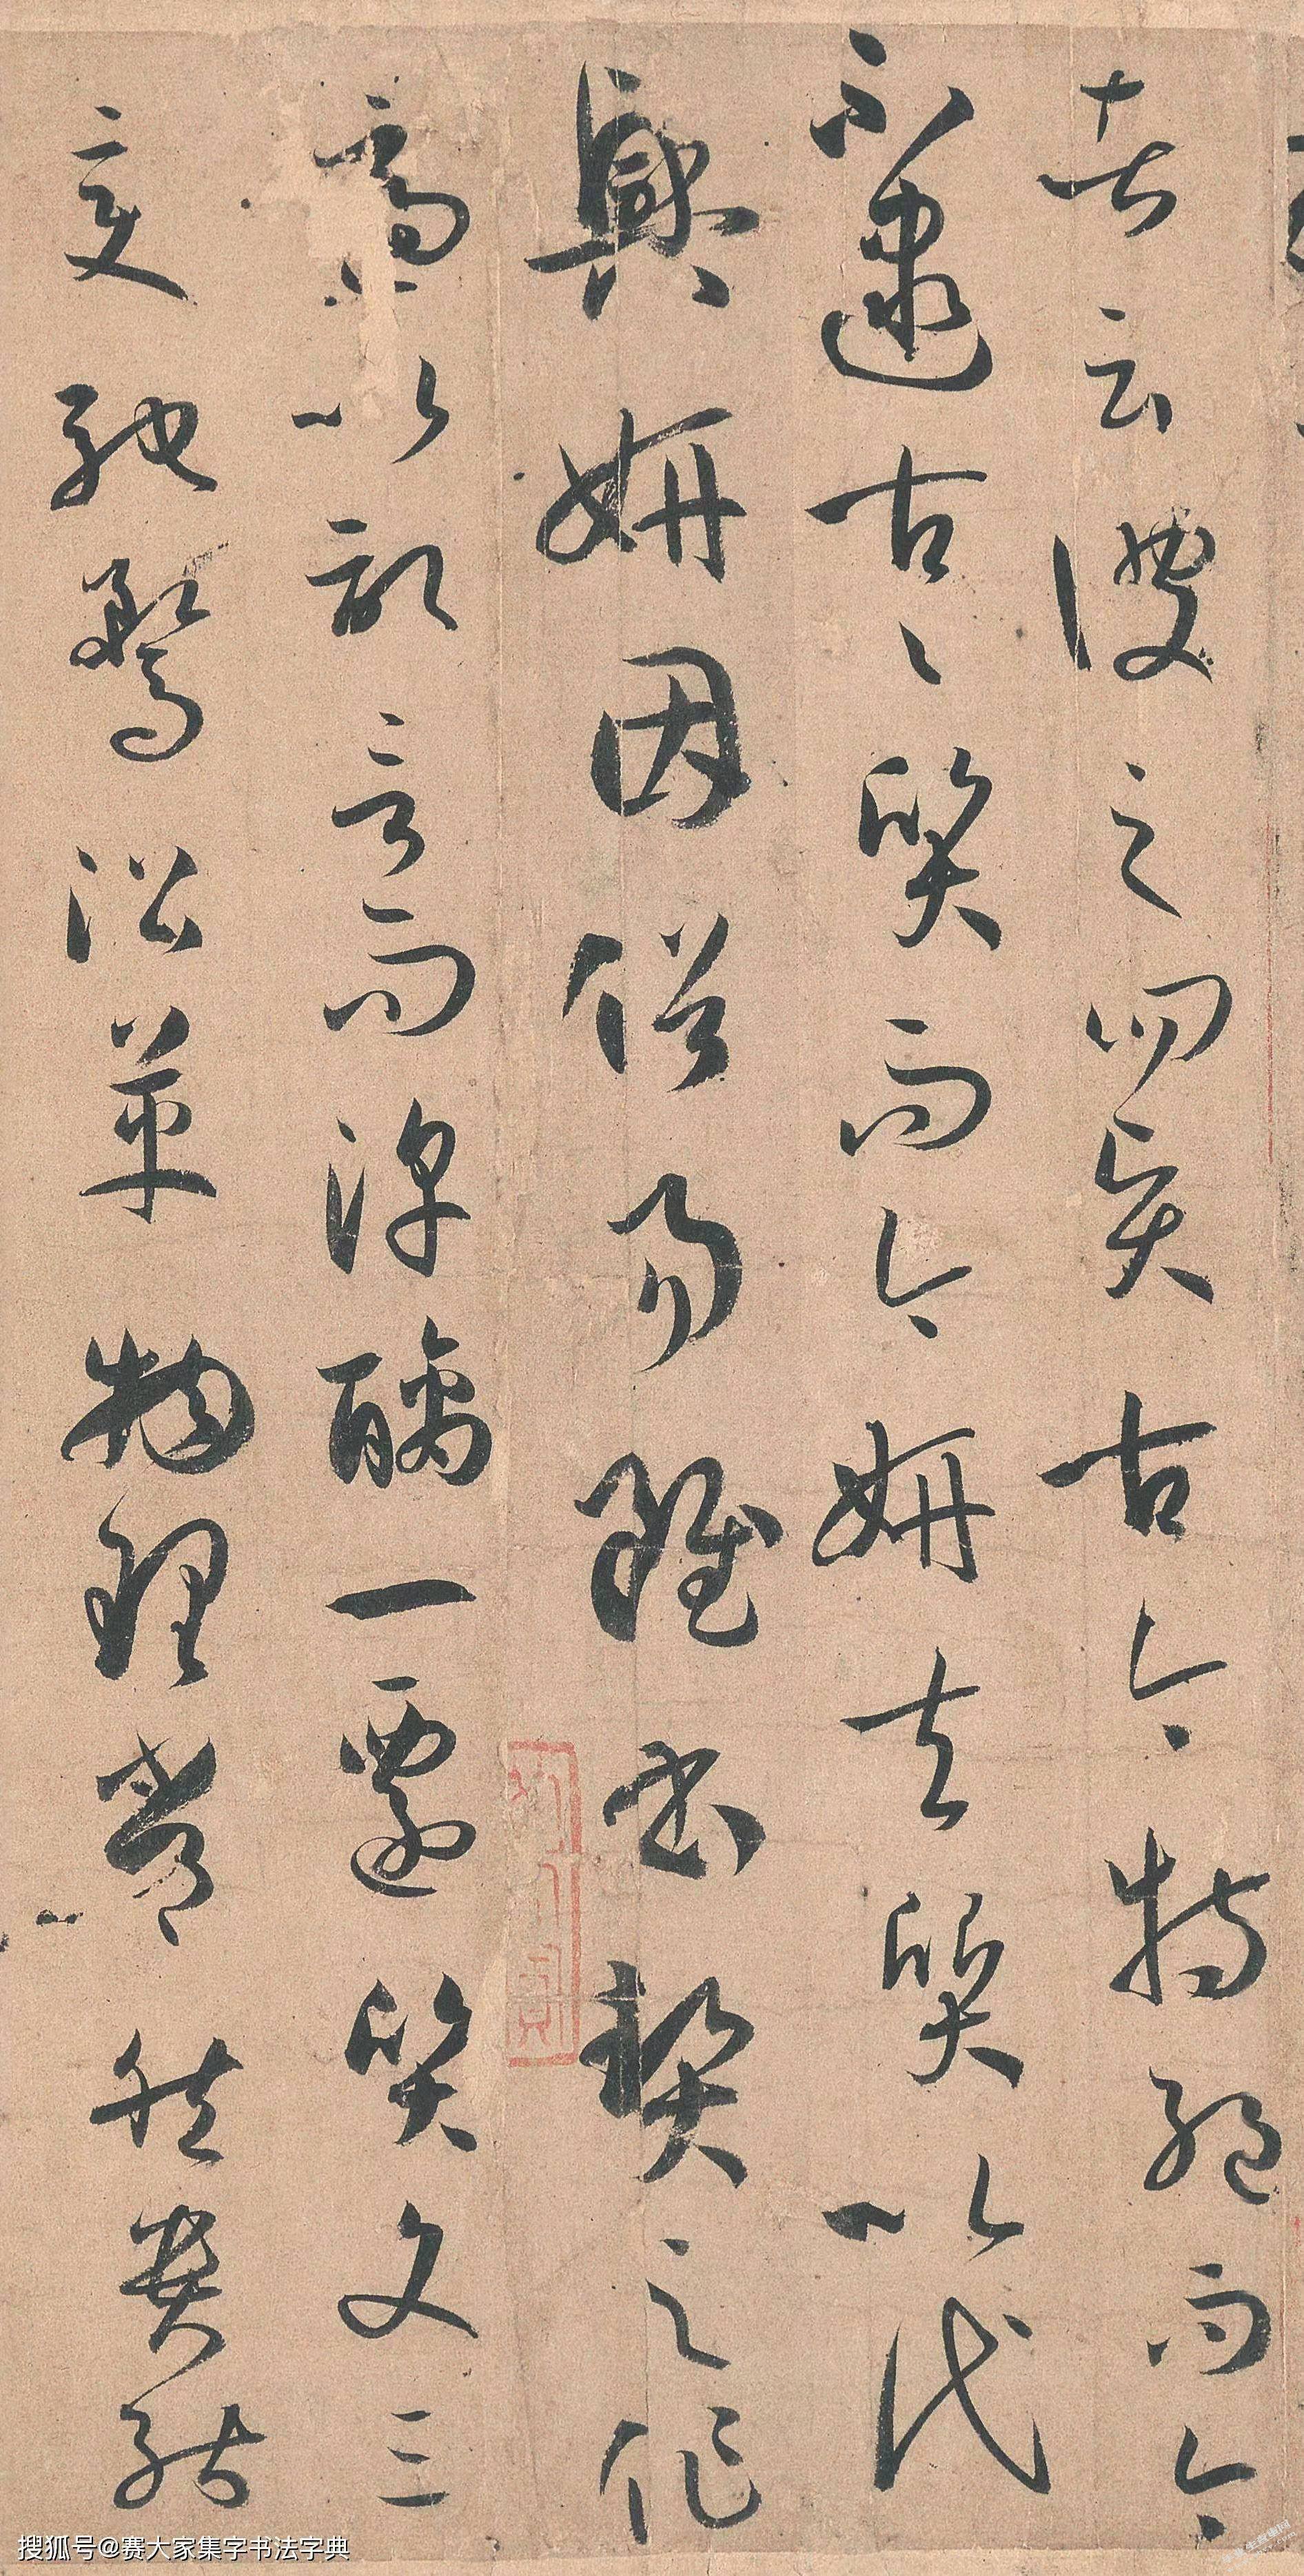 者云彼之四賢古今特絕而今
不逮古〻質而今妍夫質以代
興妍因俗易雖書契之作
適以記言而淳醨一遷質文三
變馳騖沿革物理常然貴能
搜狐号@赛大家集字书法字典